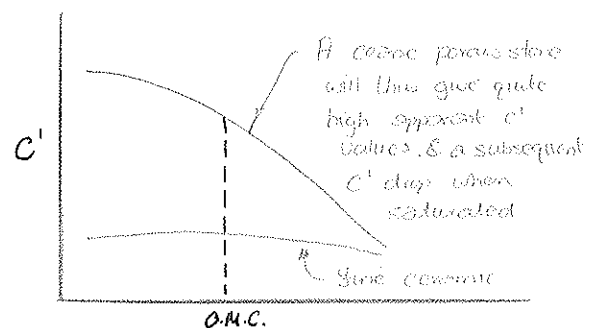 A coarse porous stone
will thus give quite
high apparent c'
values. & a subsequent
C' drop when
saturated
C'
fine ceramic
O.M.C.